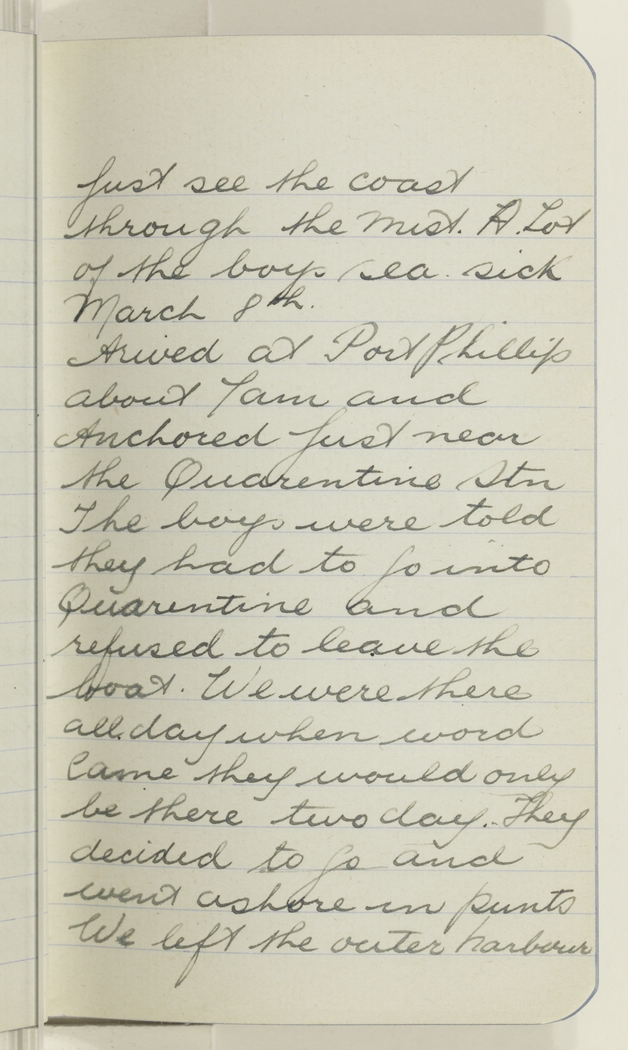 Just see the coast
through the mist. A Lot
of the boys sea sick
March 8th.
Arived at Port Phillip
about 7am and
Anchored Just near
the Quarentine Stn
The boys were told
they had to go into
Quarentine and
refused to leave the
boat. We were there
all day when word
Came they would only
be there two day. They
decided to go and
went ashore in punts
We left the outer harbour